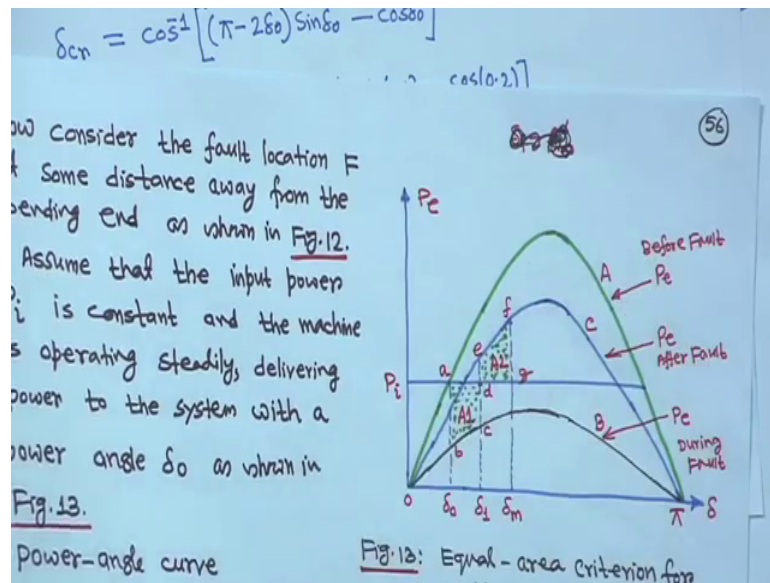 δcr = cos⁻¹[(π-2δ0) Sinδ0 - cosδ0]
cos(0.2)]
56
ow consider the fault location F
Some distance away from the
ending end as shown in Fig.12.
Assume that the input power
Pi is constant and the machine
s operating steadily, delivering
power to the system with a
power angle δ0 as shown in
Fig.13.
power-angle curve
Pe
Before Fault
A
Pe
f
C
Pe
After Fault
e
A2
a
Pi
d
g
A1
c
b
B
Pe
During
Fault
0
δ0
δ1
δm
π
δ
Fig.13: Equal-area criterion for